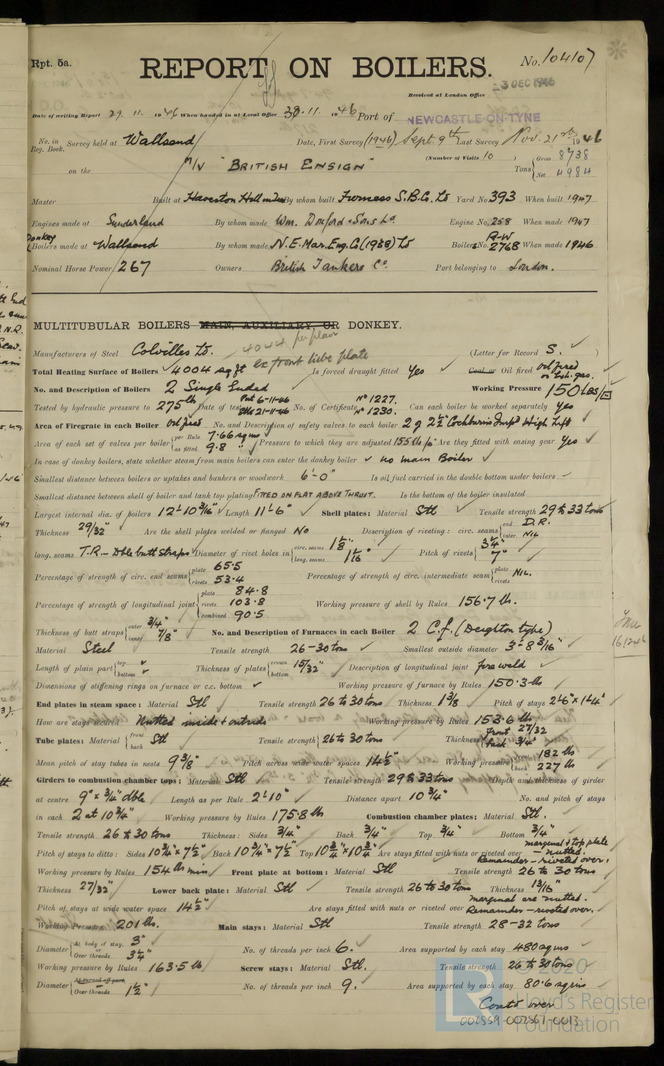 Rpt. 5a.
REPORT ON BOILERS.
No. 104107
Received at London Office
3 DEC 1946
Date of writing Report 29.11.1946 When handed in at Local Office 30.11.1946 Port of NEWCASTLE-ON-TYNE
No. in Reg. Book. Survey held at Wallsend Date, First Survey (1946) Sept. 9th Last Survey Nov. 21st 1946
(Number of Visits 10)
on the M/V "BRITISH ENSIGN" Tons { Gross 8738 Net 4984
Master Built at Haverton Hill on Tees By whom built Furness S.B.C. Ld Yard No. 393 When built 1947
Engines made at Sunderland By whom made Wm. Doxford & Sons Ld. Engine No. 258 When made 1947
Donkey Boilers made at Wallsend By whom made N.E. Mar. Eng. Co (1938) Ld Boiler No. 2768 When made 1946
Nominal Horse Power 267 Owners British Tankers Co. Port belonging to London.
MULTITUBULAR BOILERS MAIN, AUXILIARY OR DONKEY.
Manufacturers of Steel Colvilles Ld. (Letter for Record S.)
4044 per plan
ex front tube plate
Total Heating Surface of Boilers 4004 sq ft Is forced draught fitted Yes Coal or Oil fired Oil fired or Exh. gas.
No. and Description of Boilers 2 Single Ended Working Pressure 150 LBS/□
Tested by hydraulic pressure to 275 lb Date of test Port 6-11-46 Stb 21-11-46 No. of Certificate No 1227. No 1230. Can each boiler be worked separately Yes
Area of Firegrate in each Boiler Oil fired No. and Description of safety valves to each boiler 2 @ 2½" Cockburn's Impd High Lift
Area of each set of valves per boiler { per Rule 7.66 sq ins as fitted 9.8 " Pressure to which they are adjusted 155 lb/□" Are they fitted with easing gear Yes
In case of donkey boilers, state whether steam from main boilers can enter the donkey boiler no main Boiler
Smallest distance between boilers or uptakes and bunkers or woodwork 6'-0" Is oil fuel carried in the double bottom under boilers
Smallest distance between shell of boiler and tank top plating FITTED ON FLAT ABOVE THRUST. Is the bottom of the boiler insulated
Largest internal dia. of boilers 12'-10 3/16" Length 11'-6" Shell plates: Material Stl Tensile strength 29 to 33 tons
Thickness 29/32" Are the shell plates welded or flanged No Description of riveting: circ. seams { end D.R. inter. Nil
long. seams T.R. - Dble butt straps Diameter of rivet holes in { circ. seams 1 1/8" long. seams 1 1/16" Pitch of rivets { 3¼" 7"
Percentage of strength of circ. end seams { plate 65.5 rivets 53.4 Percentage of strength of circ. intermediate seam { plate rivets Nil.
Percentage of strength of longitudinal joint { plate 84.8 rivets 103.8 combined 90.5 Working pressure of shell by Rules 156.7 lb.
Thickness of butt straps { outer 3/4" inner 7/8" No. and Description of Furnaces in each Boiler 2 C.f. (Deighton type)
Material Steel Tensile strength 26-30 tons Smallest outside diameter 3'-8 3/16"
Length of plain part { top bottom Thickness of plates { crown bottom 15/32" Description of longitudinal joint fire weld
Dimensions of stiffening rings on furnace or c.c. bottom Working pressure of furnace by Rules 150.3 lb
End plates in steam space: Material Stl Tensile strength 26 to 30 tons Thickness 1 3/8 Pitch of stays 2'6" x 1'4"
How are stays secured Nutted inside & outside Working pressure by Rules 153.6 lb
Tube plates: Material { front back Stl Tensile strength { 26 to 30 tons Thickness { front 27/32 back 3/4"
Mean pitch of stay tubes in nests 9 3/8" Pitch across wide water spaces 14½" Working pressure { front 182 lbs back 227 lbs
Girders to combustion chamber tops: Material Stl Tensile strength 29 to 33 tons Depth and thickness of girder
at centre 9" x 3/4" dble Length as per Rule 2'10" Distance apart 10 3/4" No. and pitch of stays
in each 2 at 10 3/4" Working pressure by Rules 175.8 lb Combustion chamber plates: Material Stl.
Tensile strength 26 to 30 tons Thickness: Sides 3/4" Back 3/4" Top 3/4" Bottom 3/4"
Pitch of stays to ditto: Sides 10 3/4" x 7½" Back 10 3/4" x 7½" Top 10 3/4" x 10 3/4" Are stays fitted with nuts or riveted over marginal & top plate - nutted. Remainder - riveted over.
Working pressure by Rules 154 lb min Front plate at bottom: Material Stl Tensile strength 26 to 30 tons
Thickness 27/32" Lower back plate: Material Stl Tensile strength 26 to 30 tons Thickness 13/16"
Pitch of stays at wide water space 14½" Are stays fitted with nuts or riveted over marginal are nutted. Remainder - riveted over.
Working Pressure 201 lbs. Main stays: Material Stl Tensile strength 28-32 tons
Diameter { At body of stay, 3" Over threads 3¼" No. of threads per inch 6. Area supported by each stay 480 sq ins
Working pressure by Rules 163.5 lb Screw stays: Material Stl. Tensile strength 26 to 30 tons
Diameter { At turned off part Over threads 1½" No. of threads per inch 9. Area supported by each stay 80.6 sq ins
Contd over
© 2020
Lloyd's Register
Foundation
002559-002567-0013